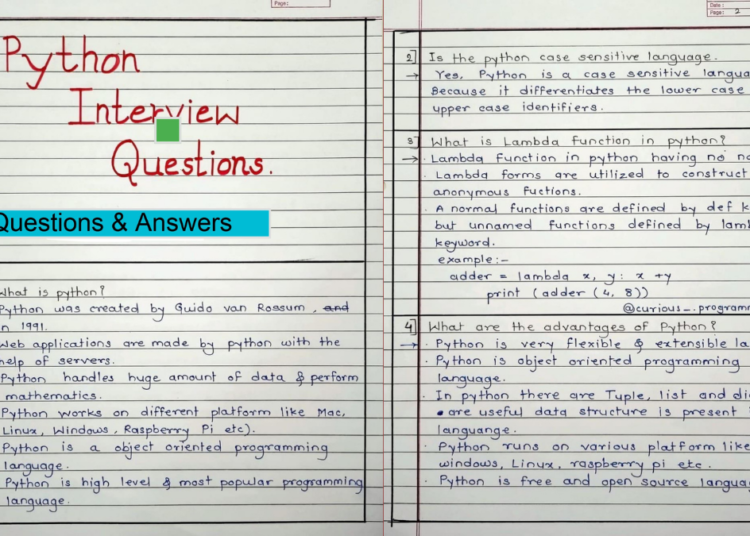 Page:
Python
Interview
Questions.
Questions & Answers
What is python?
Python was created by Guido van Rossum, and
in 1991.
Web applications are made by python with the
help of servers.
Python handles huge amount of data & perform
mathematics.
Python works on different platform like Mac,
Linux, Windows, Raspberry Pi etc).
Python is a object oriented programming
language.
Python is high level & most popular programming
language.
Date:
Page: 2
2] Is the python case sensitive language.
→ Yes, Python is a case sensitive langua
Because it differentiates the lower case
upper case identifiers.
3] What is Lambda function in python?
→ · Lambda function in python having no
· Lambda forms are utilized to construct
anonymous fuctions.
· A normal functions are defined by def k
but unnamed functions defined by lam
keyword.
example:-
adder = lambda x, y: x + y
print (adder (4, 8))
@curious_.programm
4] What are the advantages of Python?
→ · Python is very flexible & extensible la
· Python is object oriented programming
language.
· In python there are Tuple, list and di
· are useful data structure is present
languange.
· Python runs on various platform like
windows, Linux, raspberry pi etc.
· Python is free and open source langua